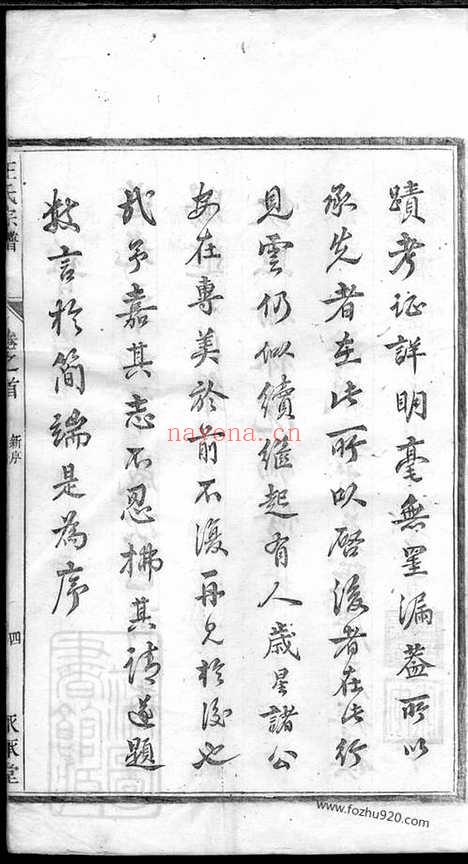 蹟考证詳明毫無罣漏蓋所以
承先者在此所以啓後者在此行
見雲仍似續繼起有人歲星諸公
安在專美於前不復再見於後也
哉予嘉其志不忍拂其請遂題
数言於简端是為序
王氏宗譜
卷之首
新序
四
堂
nayona.cn
www.fozhu920.com